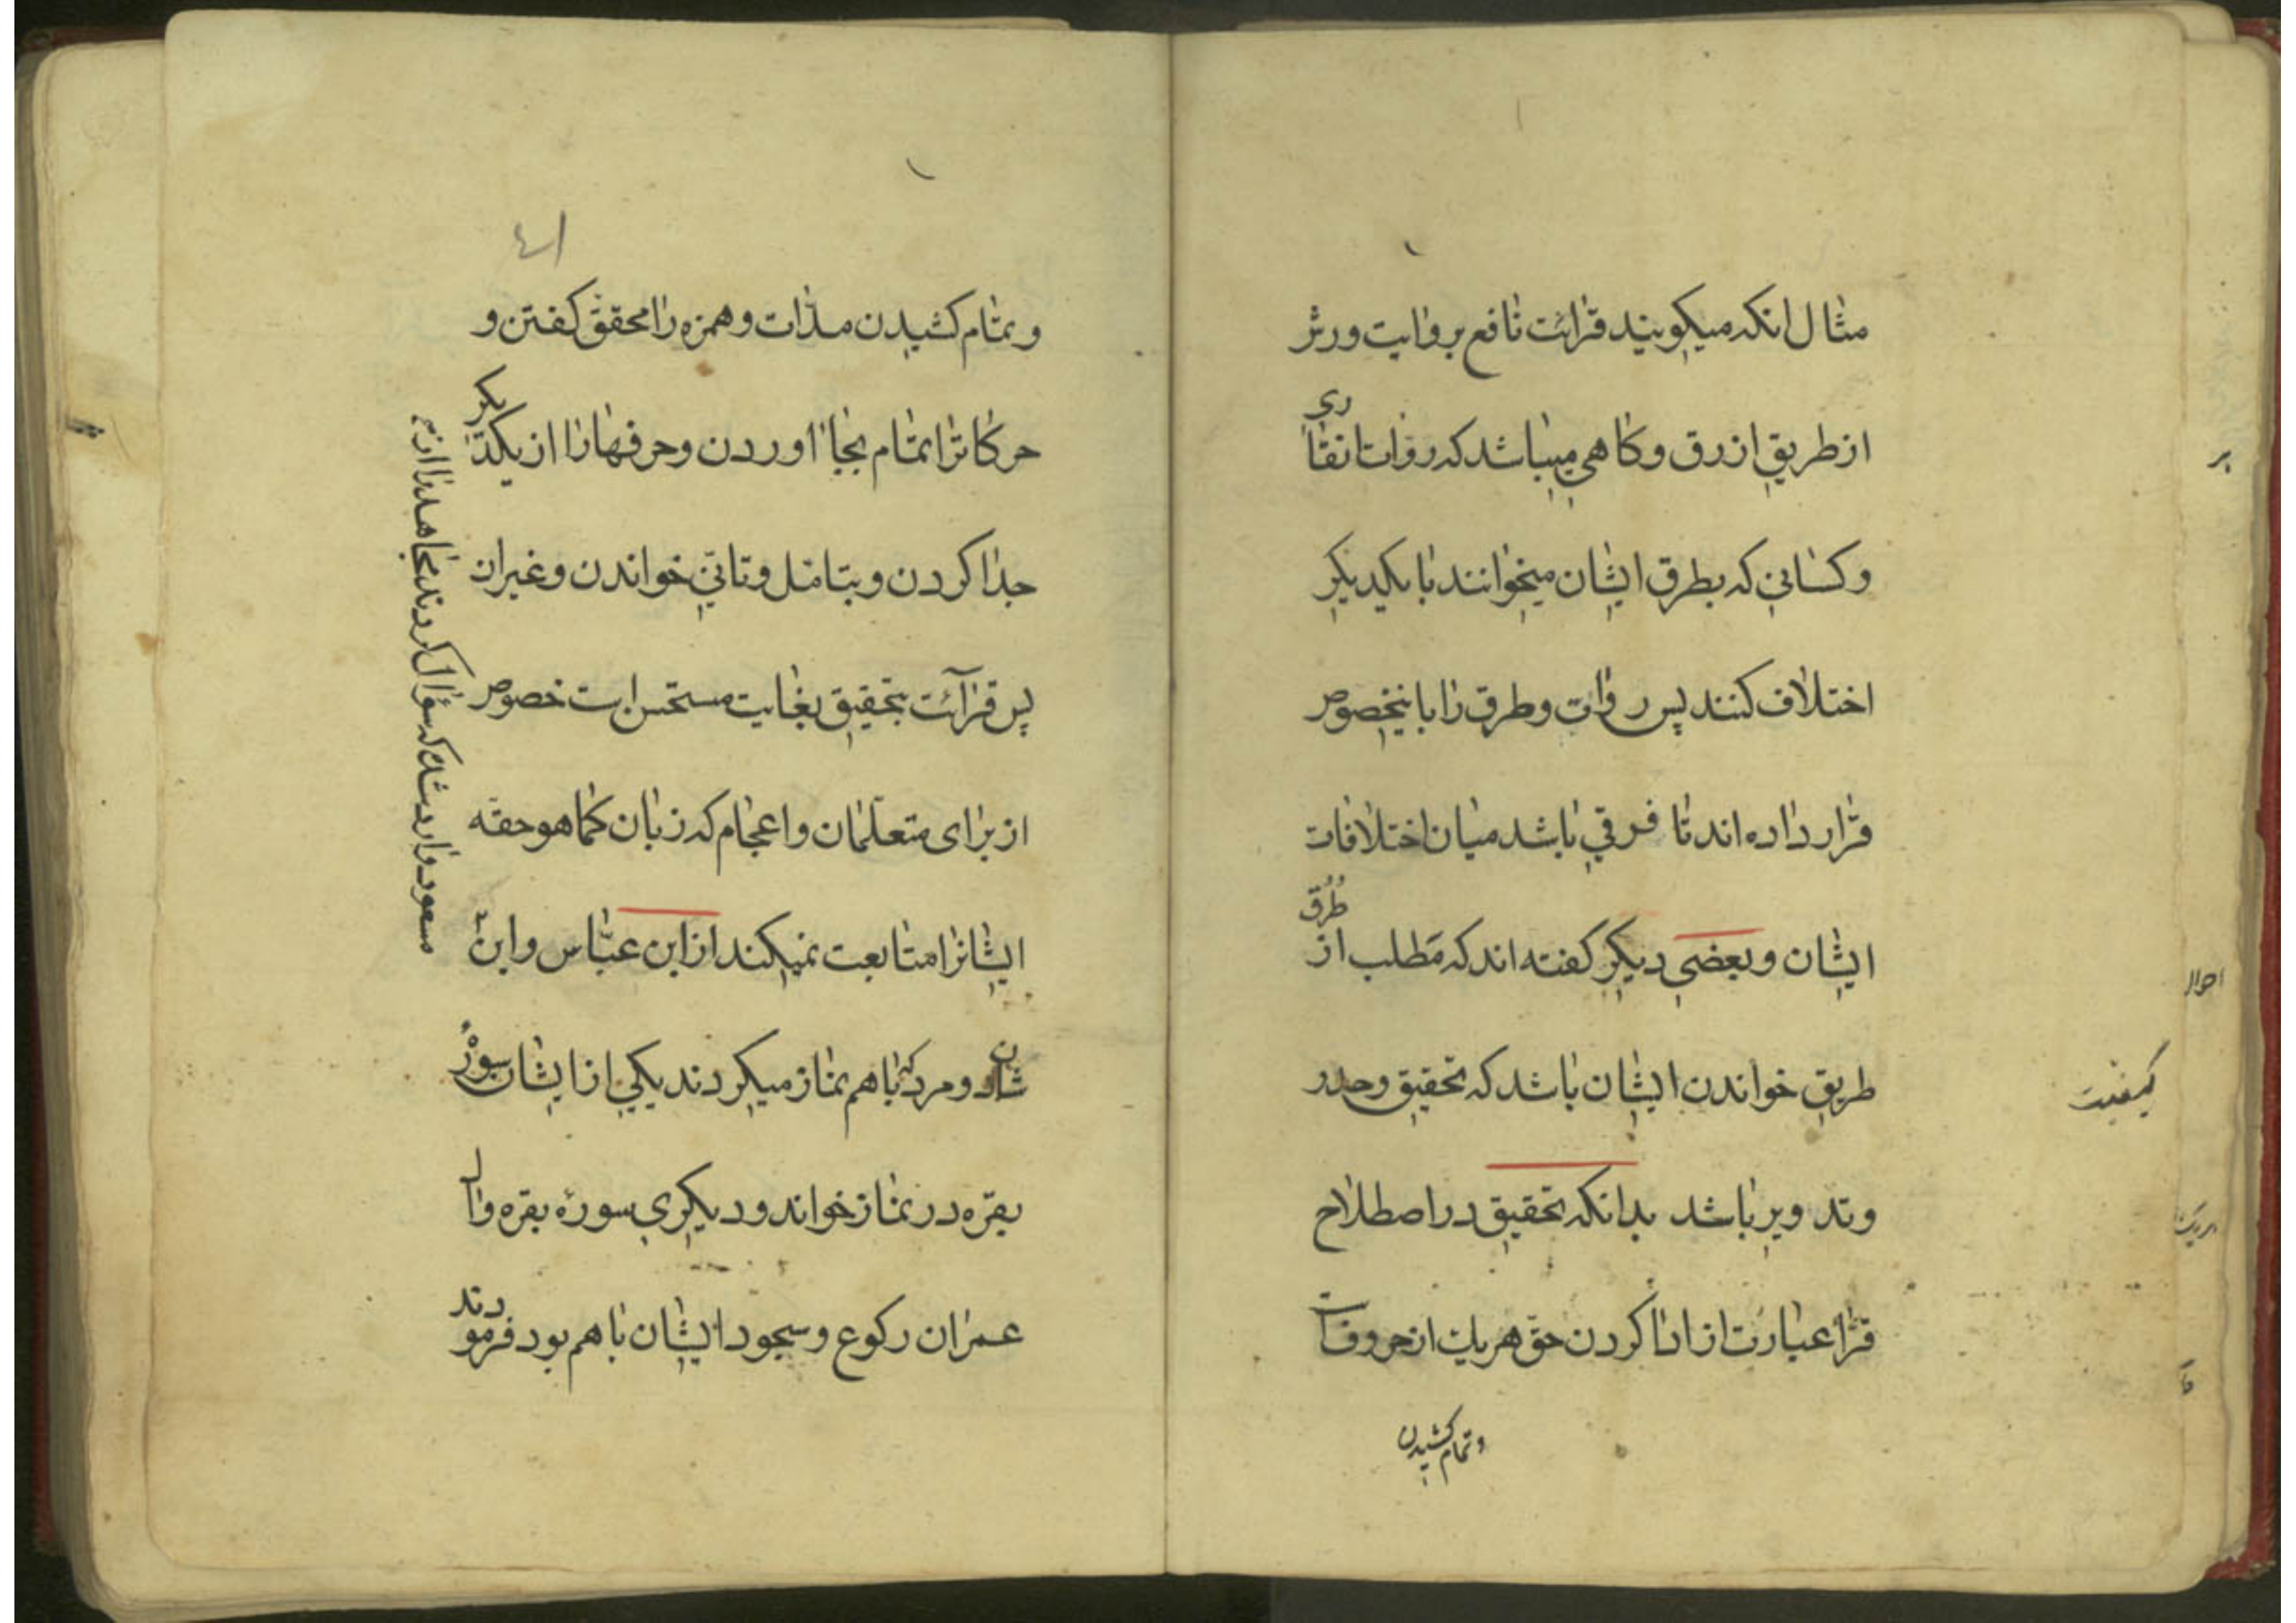 مثال انکه میکویند قرائت نافع بروایت ورش
از طریق ازرق و کاهی میباشد که روات انقاری
و کسانی که بطرق ایشان میخوانند با یکدیکر
اختلاف کنند پس روات و طرق را باینخصوص
قرار داده اند تا فرقی باشد میان اختلافات
ایشان و بعضی دیکر کفته اند که مطلب از طرق
طریق خواندن ایشان باشد که تحقیق و حدر
و تدویر باشد بدانکه تحقیق در اصطلاح
قرا عبارت از ادا کردن حق هریک از حروفات
و تمام کشیدن
کیفیت
احوال
بر
٤١
و بتمام کشیدن مدّات و همزه را محقق کفتن و
حرکاترا بتمام بجا اوردن و حرفها را از یکدیکر
جدا کردن و بتامل و تانی خواندن و غیر ان
پس قرآئت بتحقیق بغایت مستحسن است خصوص
از برای متعلّمان و اعجام که زبان کما هو حقه
ایشانرا متابعت نمیکند از ابن عبّاس و ابن
مسعود وارد شده که سؤال کردند مجاهد را از
شان دو مرد که با هم نماز میکردند یکی از ایشان سوره
بقره در نماز خواند و دیکری سورهٔ بقره و ال
عمران رکوع و سجود ایشان با هم بود فرمودند